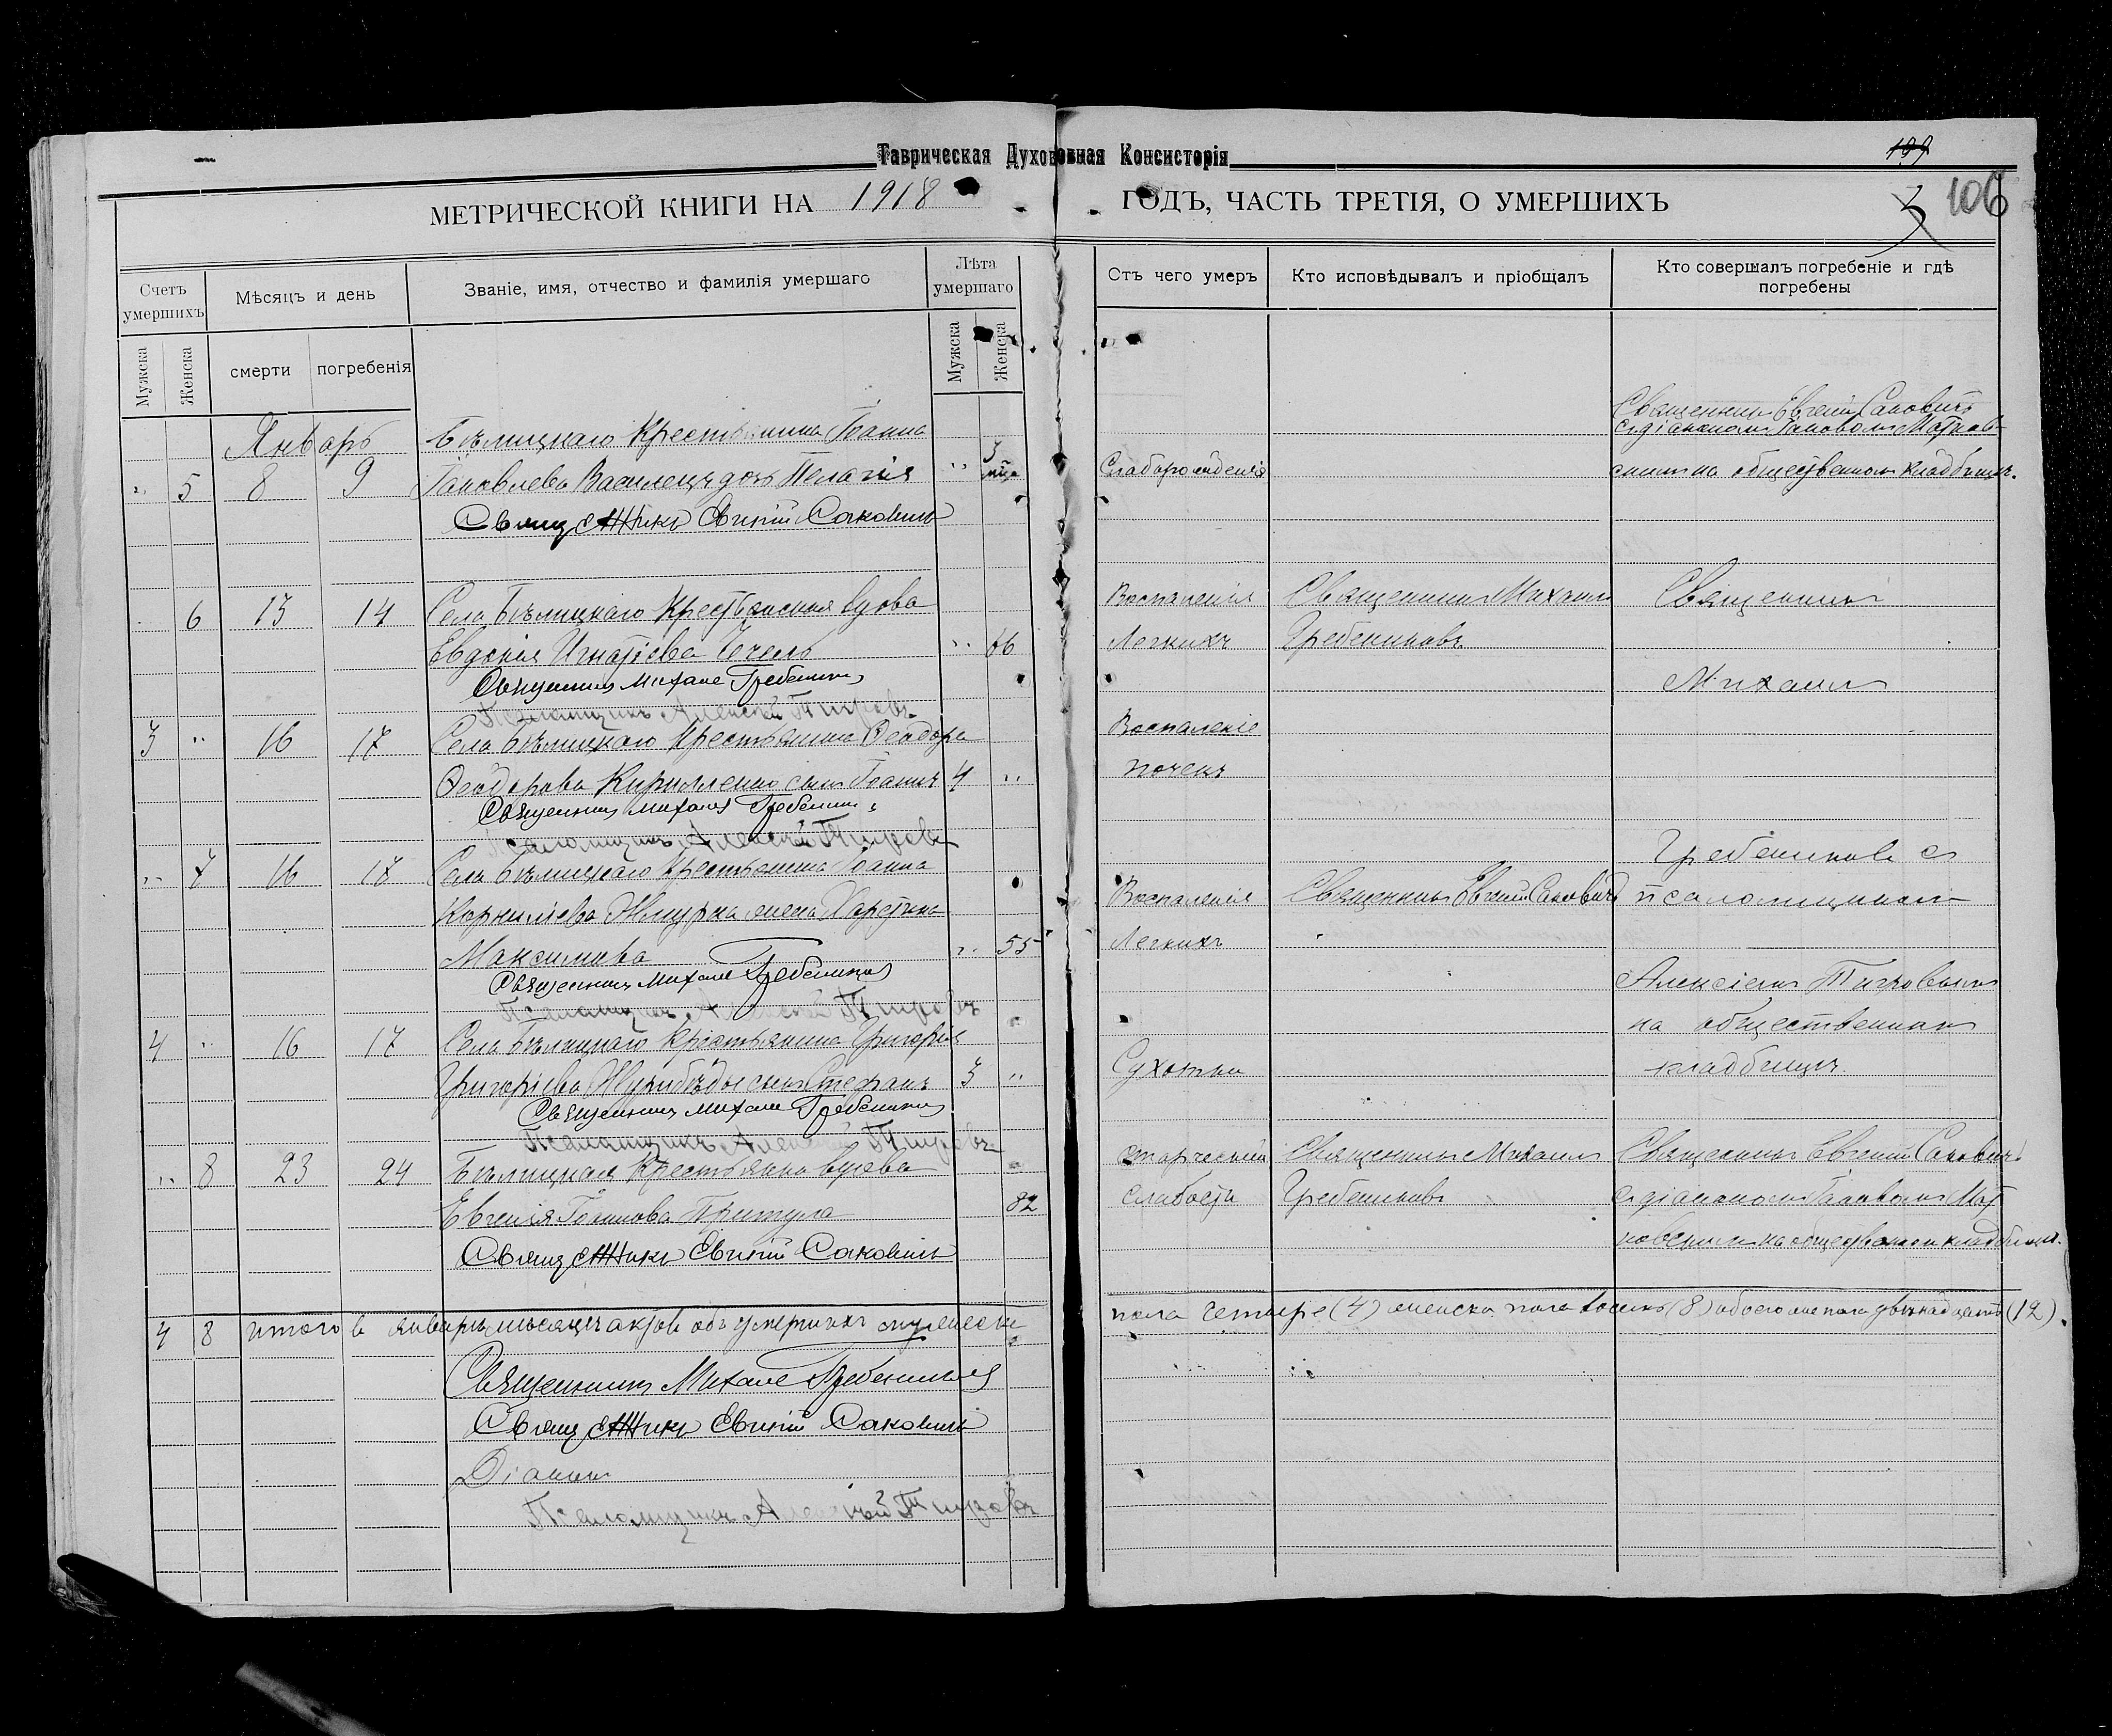 Таврическая Духовная Консисторія
199
МЕТРИЧЕСКОЙ КНИГИ НА 1918 ГОДЪ, ЧАСТЬ ТРЕТІЯ, О УМЕРШИХЪ
3 106
Счетъ умершихъ
Мѣсяцъ и день
Званіе, имя, отчество и фамилія умершаго
Лѣта умершаго
Отъ чего умеръ
Кто исповѣдывалъ и пріобщалъ
Кто совершалъ погребеніе и гдѣ погребены
Мужска
Женска
смерти
погребенія
Мужска
Женска
Январь
Бѣлицкаго Крестьянина Іоанна
Священникъ Евгеній Саковичъ
съ діакономъ Іаковомъ
" 5 8 9 Іаковлева Василецъ дочь Пелагія " 3
Слаборожденія
на общественномъ кладбищѣ.
Священникъ Евгеній Саковичъ
6 13 14 Села Бѣлицкаго Крестьянская вдова
Воспаленія Священникъ Михаилъ Священникъ
Евдокія Игнатіева " 66
Легкихъ Гребенниковъ
Священникъ Михаилъ Гребенниковъ
Михаилъ
Псаломщикъ Алексей Тигровъ
3 " 16 17 Села Бѣлицкаго Крестьянина Ѳеодора
Воспаленіе
Ѳеодорова Кириленко сынъ Іоаннъ 4 "
почекъ
Священникъ Михаилъ Гребенниковъ
Псаломщикъ Алексей Тигровъ
Гребенниковъ съ
" 7 16 17 Села Бѣлицкаго Крестьянина Іоанна
Воспаленія Священникъ Евгеній Саковичъ псаломщикомъ
Корниліева жена
Легкихъ
Максимова " 55
Священникъ Михаилъ Гребенниковъ
Алексіемъ Тигровымъ
Псаломщикъ Алексей Тигровъ
на общественномъ
4 " 16 17 Села Бѣлицкаго Крестьянина Григорія
кладбищѣ.
Григоріева сынъ Стефанъ 3 "
Сухотки
Священникъ Михаилъ Гребенниковъ
Псаломщикъ Алексей Тигровъ
" 8 23 24 Бѣлицкая Крестьянка вдова
Старческой Священникъ Михаилъ Священникъ Евгеній Саковичъ
Евгенія Іоаннова Притула 82
слабости Гребенниковъ съ діакономъ Іаковомъ
на общественномъ кладбищѣ.
Священникъ Евгеній Саковичъ
4 8 итого въ январѣ мѣсяцѣ актовъ объ умершихъ мужеска
пола четыре (4) женска пола восемь (8) обоего же пола двѣнадцать (12).
Священникъ Михаилъ Гребенниковъ
Священникъ Евгеній Саковичъ
Діаконъ
Псаломщикъ Алексей Тигровъ